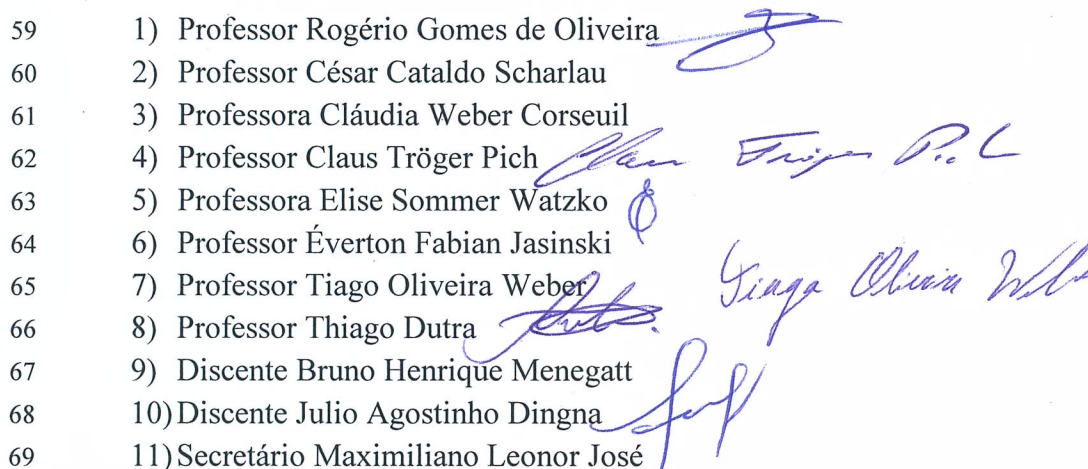 59 1) Professor Rogério Gomes de Oliveira
60 2) Professor César Cataldo Scharlau
61 3) Professora Cláudia Weber Corseuil
62 4) Professor Claus Tröger Pich Claus Tröger Pich
63 5) Professora Elise Sommer Watzko
64 6) Professor Éverton Fabian Jasinski
65 7) Professor Tiago Oliveira Weber Tiago Oliveira Weber
66 8) Professor Thiago Dutra
67 9) Discente Bruno Henrique Menegatt
68 10) Discente Julio Agostinho Dingna
69 11) Secretário Maximiliano Leonor José